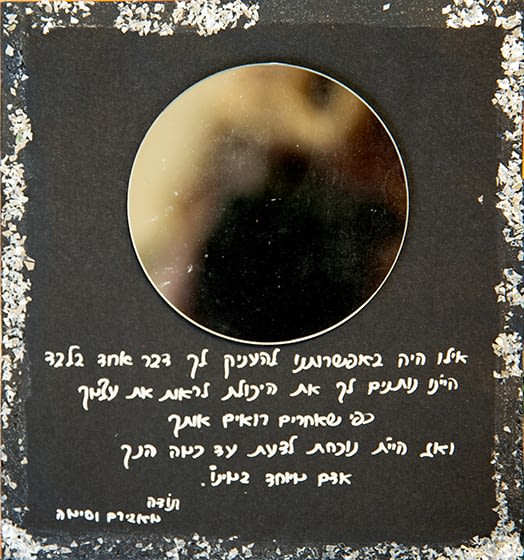 אילו היה באפשרותנו להעניק לך דבר אחד בלבד
היינו נותנים לך את היכולת לראות את עצמך
כפי שאחרים רואים אותך
ואז היית נוכחת לדעת עד כמה הנך
אדם מיוחד במינו.
תודה
מאבירם וסימה